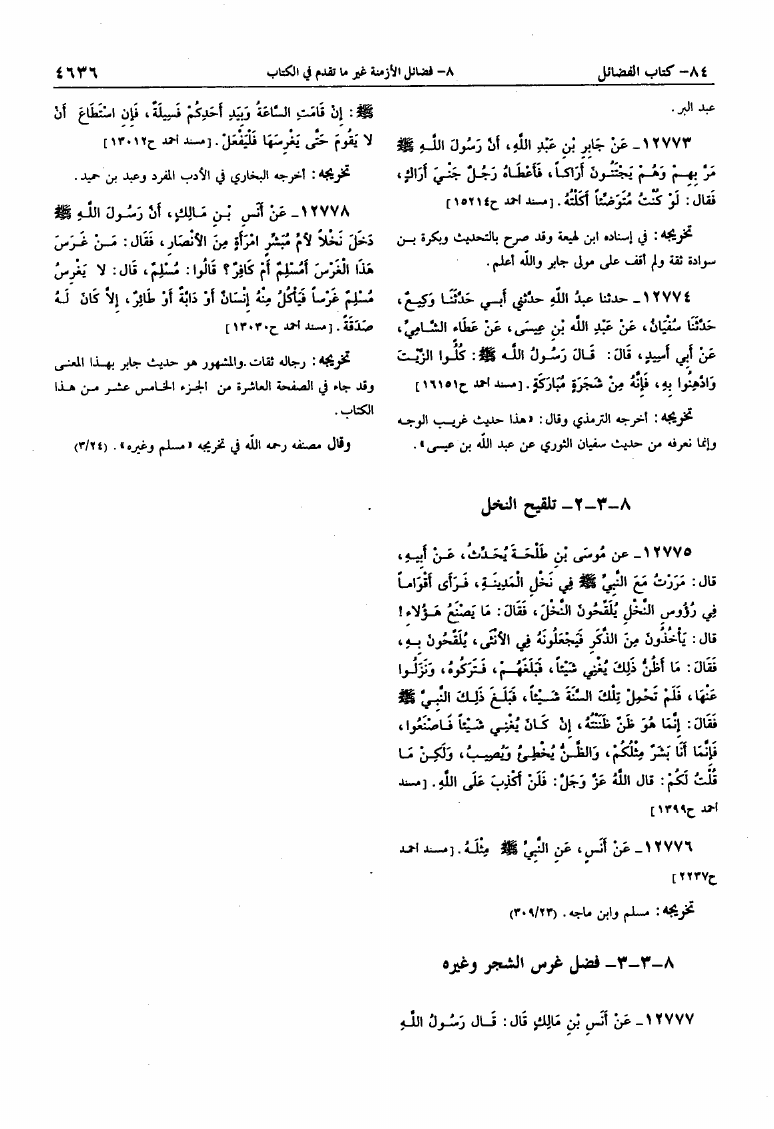 ٨٤- كتاب الفضائل
٨- فضائل الأزمنة غير ما تقدم في الكتاب
٤٦٣٦
عبد البر.
١٢٧٧٣- عَنْ جَابِرِ بْنِ عَبْدِ اللَّهِ، أَنَّ رَسُولَ اللَّـهِ ﷺ
مَرَّ بِهِـمْ وَهُـمْ يَجْتَنُـونَ أَرَاكـاً، فَأَعْطَـاهُ رَجُـلٌ جَنْـيَ أَرَاكٍ،
فَقَالَ: لَوْ كُنْتُ مُتَوَضِّئاً أَكَلْتُهُ. [مسند احمد ح١٥٢١٤]
تخريجه: في إسناده ابن لهيعة وقد صرح بالتحديث وبكرة بـن
سوادة ثقة ولم أقف على مولى جابر والله أعلم.
١٢٧٧٤- حدثنا عبدُ اللهِ حدّثني أبـي حَدَّثَنَـا وَكِيـعٌ،
حَدَّثَنَا سُفْيَانُ، عَنْ عَبْدِ الله بْنِ عِيسَى، عَنْ عَطَاء الشَّـامِيِّ،
عَنْ أَبي أَسِيدٍ، قَالَ: قَـالَ رَسُـولُ اللـه ﷺ: كُلُـوا الزَّيْـتَ
وَادْهِنُوا بِهِ، فَإِنَّهُ مِنْ شَجَرَةٍ مُبَارَكَةٍ. [مسند احمد ح١٦١٥١]
تخريجه: أخرجه الترمذي وقال: «هذا حديث غريب الوجه
وإنما نعرفه من حديث سفيان الثوري عن عبد الله بن عيسى».
٨-٣-٢- تلقيح النخل
١٢٧٧٥- عن مُوسَى بْنِ طَلْحَـةَ يُحَدِّثُ، عَـنْ أَبِيـهِ،
قال: مَرَرْتُ مَعَ النَّبِيِّ ﷺ فِي نَخْلِ الْمَدِينَـةِ، فَـرَأَى أَقْوَامـاً
فِي رُؤُوسِ النَّخْلِ يُلَقِّحُونَ النَّخْلَ، فَقَالَ: مَا يَصْنَعُ هَـؤُلاءِ!
قال: يَأْخُذُونَ مِنَ الذَّكَرِ فَيَجْعَلُونَهُ فِي الأُنْثَى، يُلَقِّحُونَ بِـهِ،
فَقَالَ: مَا أَظُنُّ ذَلِكَ يُغْنِي شَيْئاً، فَبَلَغَهُـمْ، فَـتَرَكُوهُ، وَنَزَلُـوا
عَنْهَا، فَلَمْ تَحْمِلْ تِلْكَ السَّنَةَ شَـيْئاً، فَبَلَـغَ ذَلِـكَ النَّبِـيَّ ﷺ
فَقَالَ: إِنَّمَا هُوَ ظَنٌّ ظَنَنْتُهُ، إِنْ كَـانَ يُغْنِـي شَـيْئاً فَـاصْنَعُوا،
فَإِنَّمَا أَنَا بَشَرٌ مِثْلُكُمْ، وَالظَّـنُّ يُخْطِئُ وَيُصِيـبُ، وَلَكِـنْ مَـا
قُلْتُ لَكُمْ: قال اللَّهُ عَزَّ وَجَلَّ: فَلَنْ أَكْذِبَ عَلَى اللَّهِ. [مسـند
احمد ح١٣٩٩]
١٢٧٧٦- عَنْ أَنَسٍ، عَنِ النَّبِيِّ ﷺ مِثْلَـهُ. [مسـند احمـد
ح٢٢٣٧]
تخريجه: مسلم وابن ماجه. (٣٠٩/٢٣)
٨-٣-٣- فضل غرس الشجر وغيره
١٢٧٧٧- عَنْ أَنَسِ بْنِ مَالِكٍ قَالَ: قَـال رَسُـولُ اللَّـهِ
ﷺ: إِنْ قَامَتِ السَّاعَةُ وَبِيَدِ أَحَدِكُمْ فَسِيلَةٌ، فَإِنِ اسْتَطَاعَ أَنْ
لا يَقُومَ حَتَّى يَغْرِسَهَا فَلْيَفْعَلْ. [مسند احمد ح١٣٠١٢]
تخريجه: أخرجه البخاري في الأدب المفرد وعبد بن حميد.
١٢٧٧٨- عَنْ أَنَسِ بْـنِ مَـالِكٍ، أَنَّ رَسُـولَ اللَّـهِ ﷺ
دَخَلَ نَخْلاً لأُمِّ مُبَشِّرٍ امْرَأَةٍ مِنَ الأَنْصَارِ، فَقَالَ: مَـنْ غَـرَسَ
هَذَا الْغَرْسَ أَمُسْلِمٌ أَمْ كَافِرٌ؟ قَالُوا: مُسْلِمٌ، قال: لا يَغْرِسُ
مُسْلِمٌ غَرْساً فَيَأْكُلُ مِنْهُ إِنْسَانٌ أَوْ دَابَّةٌ أَوْ طَائِرٌ، إِلاَّ كَانَ لَـهُ
صَدَقَةً. [مسند احمد ح١٣٠٣٠]
تخريجه: رجاله ثقات.والمشهور هو حديث جابر بهـذا المعنـى
وقد جاء في الصفحة العاشرة من الجزء الخامس عشـر مـن هـذا
الكتاب.
وقال مصنفه رحمه الله في تخريجه «مسلم وغيره». (٣/٢٤)